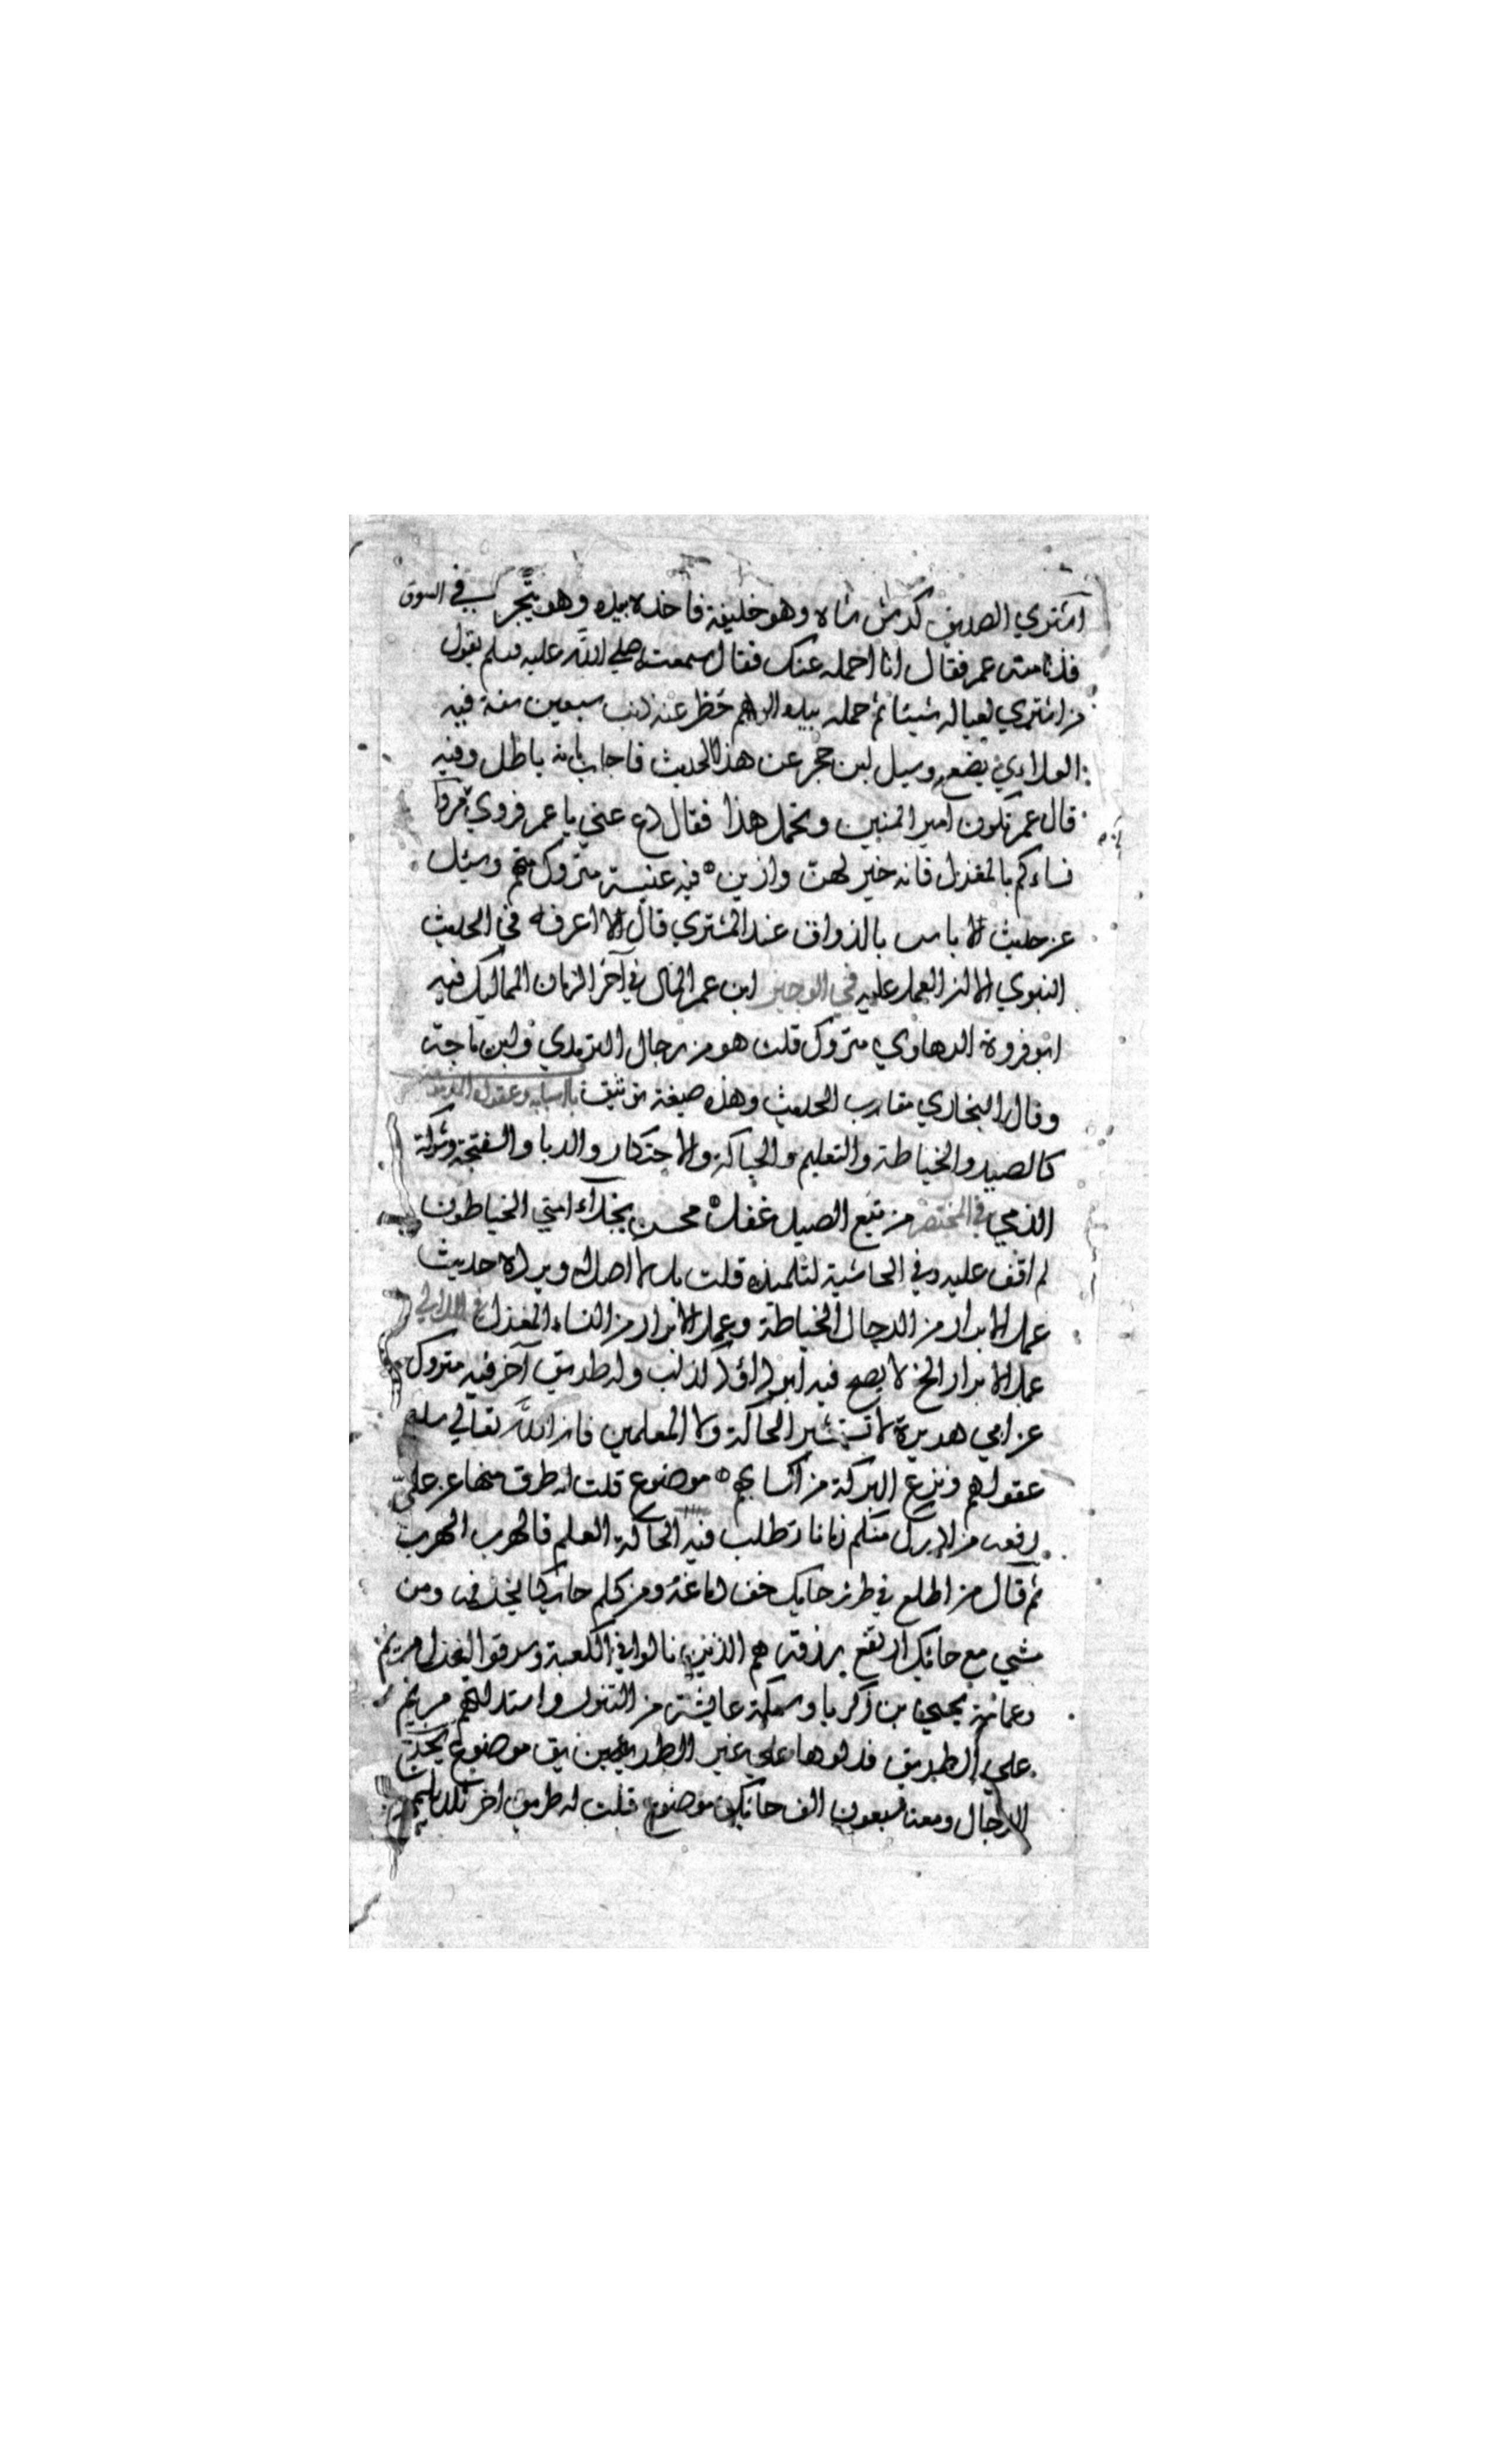 اشتري الصديق كرش شاه وهو خليفة فاخذه بيده وهو يتجر في السوق
فدنا منه عمر فقال انا احمله عنك فقال سمعته صلي الله عليه وسلم يقول
من اشتري لعياله شيئا ثم حمله بيده اليهم حظ عنه ذنب سبعين سنة فيه
العلادي يضع وسيل ابن حجر عن هذا الحديث فاجاب بانه باطل وفيه
قال عمر تكون امير المنين وتحمل هذا فقال دع عني يا عمر فروي مروا
نساءكم بالمغزل فانه خير لهن وازين فيه عنبسة متروك متهم وسيئل
عن حديث لا باس بالذواق عند المشتري قال لا اعرفه في الحديث
النبوي الا ان العمل عليه في الوجيز ابن عمر المال في آخر الزمان المماليك فيه
ابو فروة الرهاوي متروك قلت هو من رجال الترمذي وابن ماجة
وقال البخاري مقارب الحديث وهذه صيغة توثيق باب
كالصيد والخياطة والتعليم والحياكة والاحتكار والربا والسفتجة وشركة
الذمي في المختصر من تبع الصيد غفل محسن بخلاء امتي الخياطون
لم اقف عليه وفي الحاشية لتلميذه قلت بل لا اصل له ويرده حديث
عمل الابرار من الرجال الخياطة وعمل الابرار من النساء المغزل في اللآلي
عمل الابرار الخ لا يصح فيه ابو داؤد كذاب وله طريق آخر فيه متروك
عن ابي هريرة لا تستشير الحاكة ولا المعلمين فان الله تعالي سلبهم
عقولهم ونزع البركة من اكسابهم موضوع قلت له طرق منها عن علي
رفعه من ادرك منكم زمانا تطلب فيه الحاكة العلم فالهرب الهرب
ثم قال من اطلع في طرز حايك خف دماغه ومن كلم حائكا بخر فمه ومن
مشي مع حائك ارتفع رزقه هم الذين بالوا في الكعبة وسرقوا الغزل مريم
وعمامة يحيي بن زكريا وسمكة عايشة من التنور واستدلتهم مريم
علي الطريق فدلوها علي غير الطريق موضوع يخرج
الدجال ومعه سبعون الف حائك موضوع قلت له طريق اخر